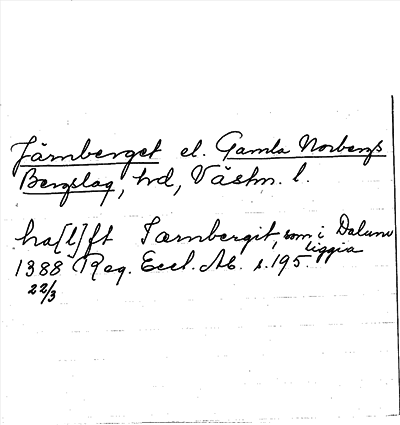 Järnberget el. Gamla Norbergs
Bergslag, hd, Västm. l.
ha[l]ft Iærnbergit, som i Dalum liggia
1388 22/3 Reg. Eccl. Ab. s. 195.